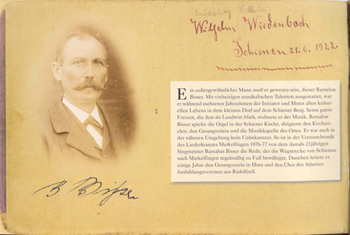 Wilhelm Wiedenbach
Schienen 21.6.1922
Ein außergewöhnlicher Mann muß er gewesen sein, dieser Barnabas
Bisser. Mit vielseitigen musikalischen Talenten ausgestattet, war
er während mehreren Jahrzehnten der Initiator und Motor allen kultur-
ellen Lebens in dem kleinen Dorf auf dem Schiener Berg. Seine ganze
Freizeit, die ihm als Landwirt blieb, widmete er der Musik. Barnabas
Bisser spielte die Orgel in der Schiener Kirche, dirigierte den Kirchen-
chor, den Gesangverein und die Musikkapelle des Ortes. Er war auch in
der näheren Umgebung kein Unbekannter. So ist in der Vereinschronik
des Liederkranzes Markelfingen 1876-77 von dem damals 27jährigen
Singmeister Barnabas Bisser die Rede, der die Wegstrecke von Schienen
nach Markelfingen regelmäßig zu Fuß bewältigte. Daneben leitete er
einige Jahre den Gesangverein in Horn und den Chor des Arbeiter-
fortbildungsvereines aus Radolfzell.
B Bisser